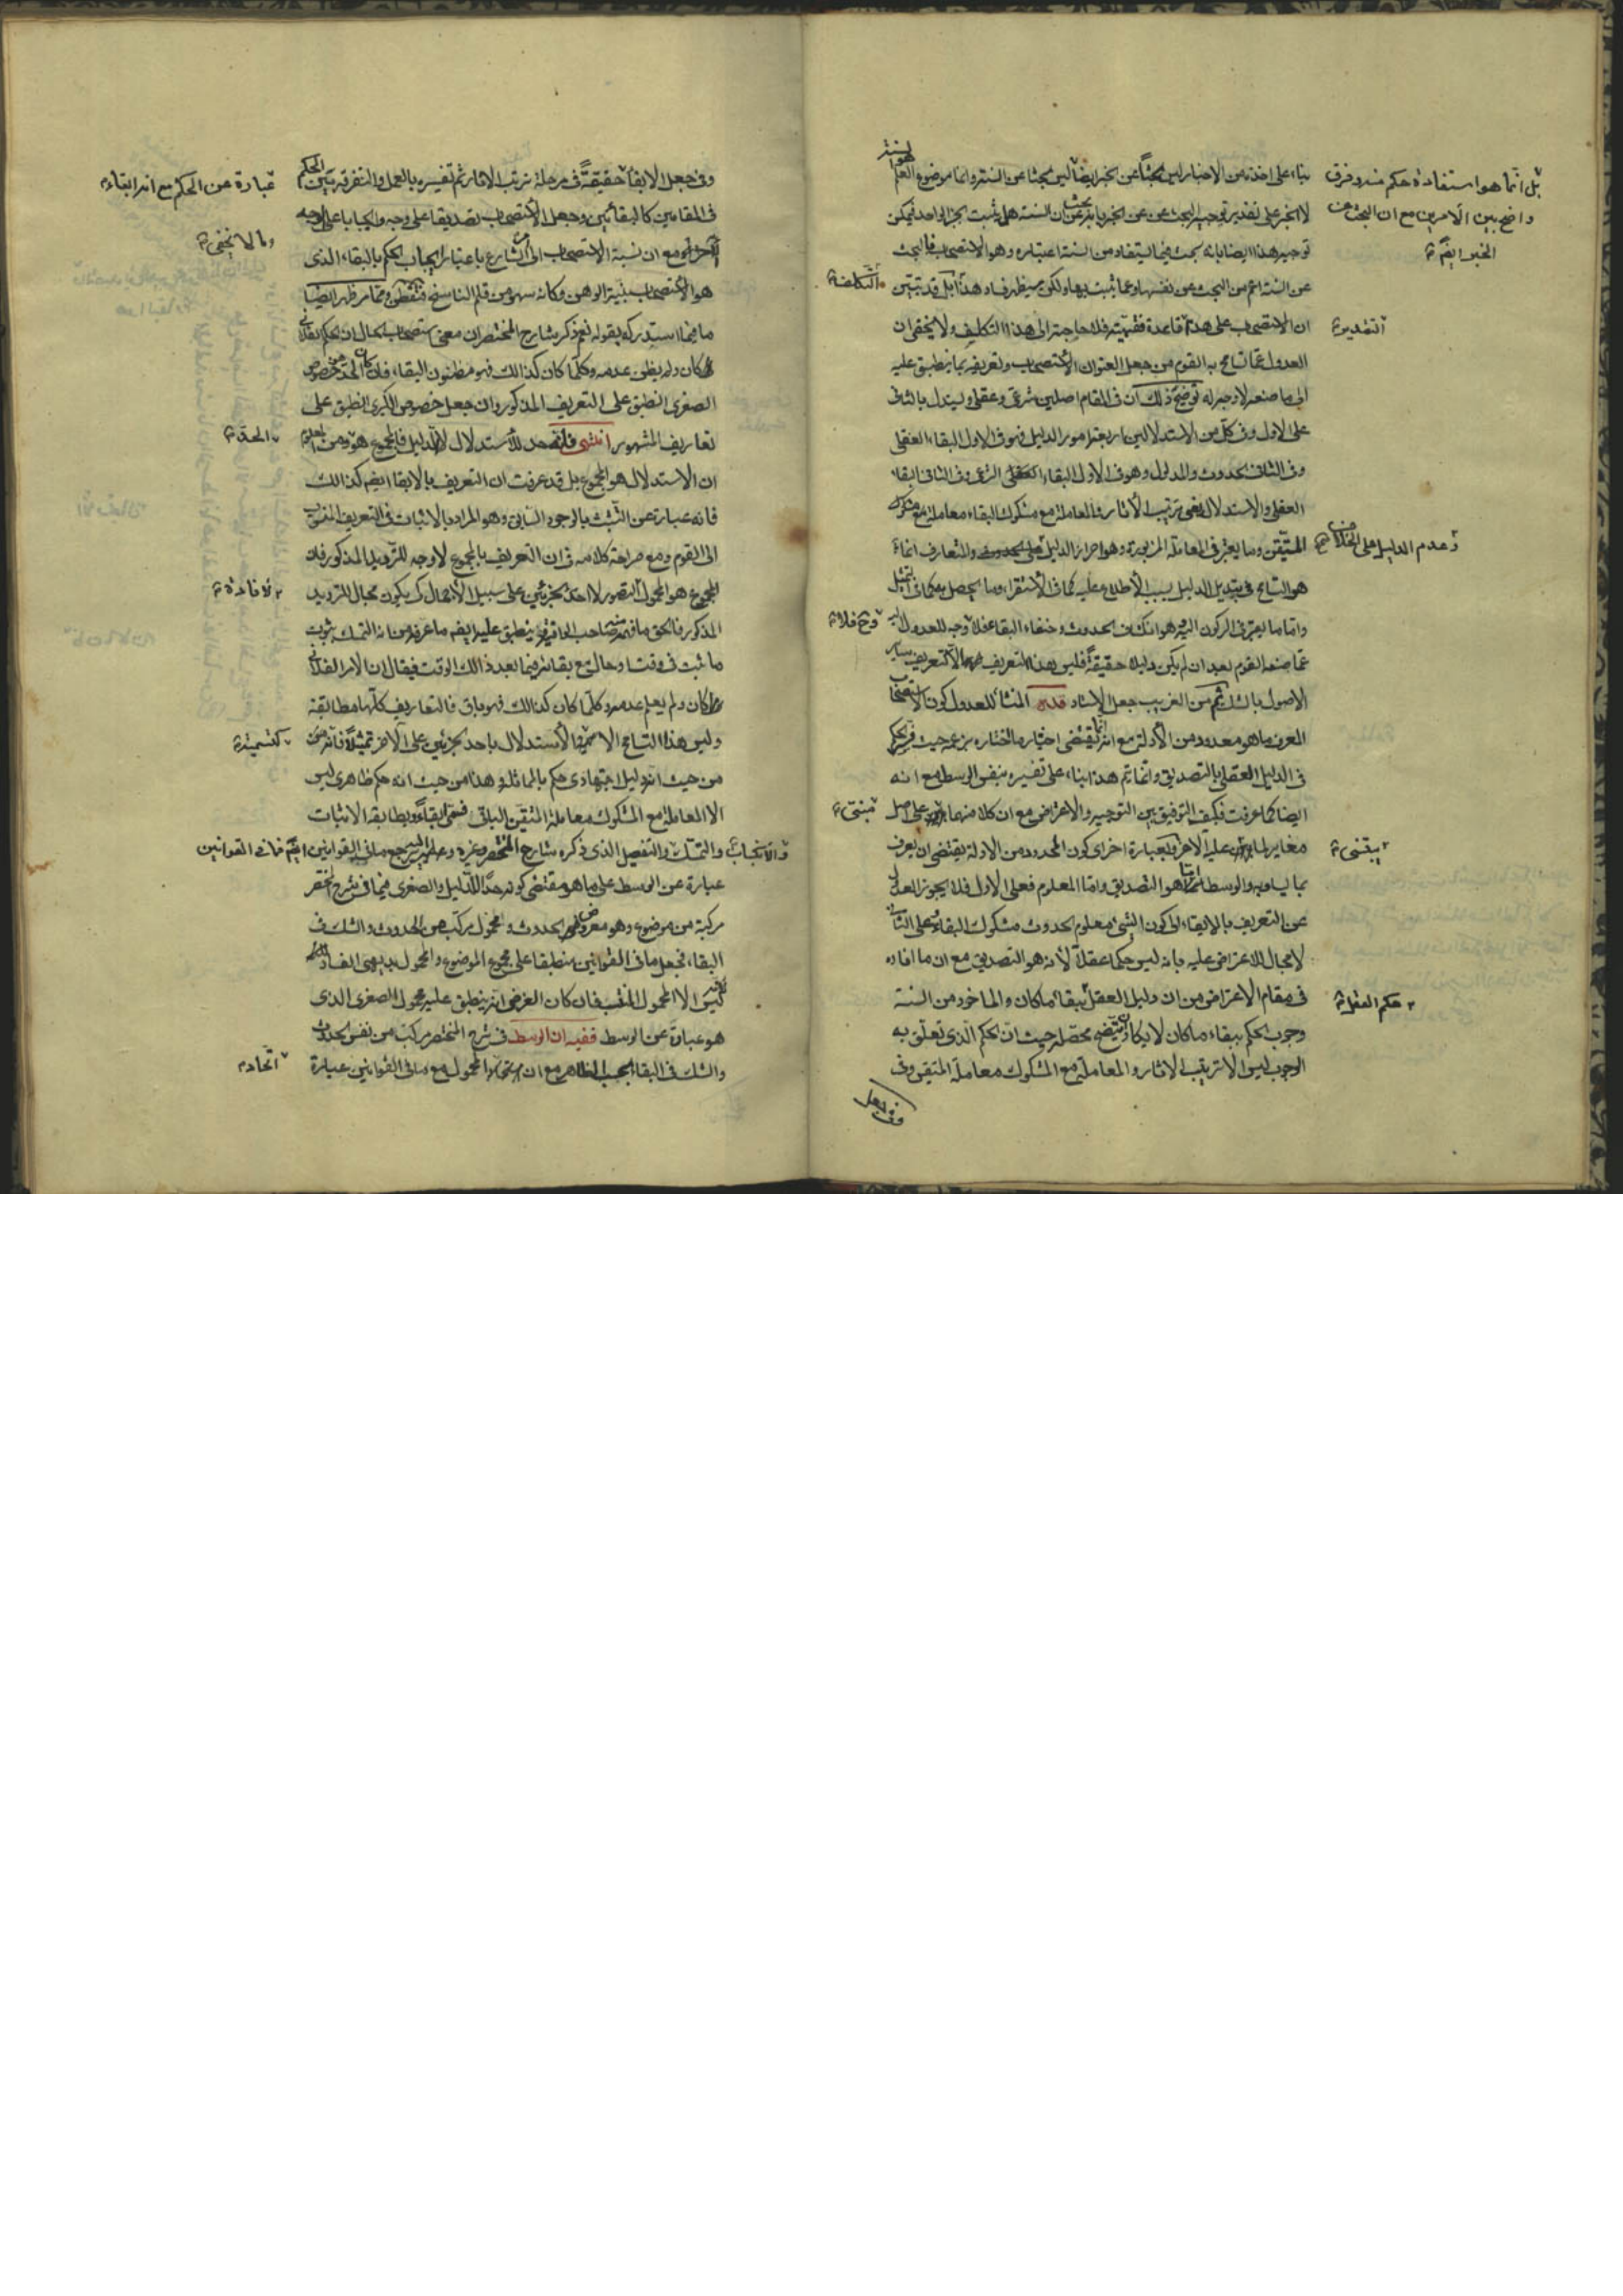 بناء على اخذه من الاخبار ليس بحثا عن الخبر ايضا ليس بحثا عن السنة وانما موضوع العلم هو السنة
لا الخبر على تقدير توجيه البحث عن الخبر بان السنة هل يثبت بخبر الواحد فيمكن
توجيه هذا ايضا بانه بحث فيما يستفاد من السنة اعتباره وهو الاستصحاب فالبحث
عن السنة اعم من البحث عن نفسها وعما يثبت بها ولكن يظهر فساد هذا بل قد تبين
ان الاستصحاب على هذا قاعدة فقهية فلا حاجة الى هذا التكليف ولا يخفى ان
العدول عما تسامح به القوم من جعل العنوان الاستصحاب وتعريفه بما ينطبق عليه
الى ما صنعه لا وجه له توضيح ذلك ان في المقام اصلين شرعي وعقلي وليستدل بالثاني
على الاول وفي كل من الاستدلالين اربعة امور الدليل فهو في الاول البقاء العقلي
وفي الثاني الحدوث والمدلول وهو في الاول البقاء الشرعي وفي الثاني البقاء
العقلي والاستدلال اعني ترتيب الآثار والمعاملة مع مشكوك البقاء معاملة
المتيقن وما يعتبر في المعاملة المزبورة وهو احراز الدليل والمتعارف انما
هو التسامح في تبديل الدليل بسبب الاطلاع عليه كما في الاستقراء وما يحصل به كما في التمثيل
واما ما يعتبر في الركون اليه هو انكشاف الحدوث وخفاء البقاء فلا وجه للعدول
عما صنعه القوم بعد ان لم يكن دليلا حقيقة فليس هذا التعريف الا كتعريف ساير
الاصول بالشك ثم من الغريب جعل الاستاد قده المنشأ للعدول كون الاستصحاب
المعرف ما هو معدود من الادلة مع انه انما يقتضي اختياره ما اختاره بزعمه حيث فسر الحكم
في الدليل العقلي بالتصديق وانما تم هذا بناء على تفسيره بنفس الوسط مع انه
ايضا كما عرفت فكيف التوفيق بين التوجيه والاعتراض مع ان كلا منهما على اصل
مغاير لما عليه الآخر وبعبارة اخرى كون المحدود من الادلة يقتضي ان يعرف
بما يساويه والوسط اما هو التصديق واما المعلوم فعلى الاول فلا يجوز العدول
عن التعريف بالابقاء الى كون الشيء معلوم الحدوث مشكوك البقاء وعلى الثاني
لا مجال للاعتراض عليه بانه ليس حكما عقلا لانه هو التصديق مع ان ما افاده
في مقام الاعتراض من ان دليل العقل بقاء ما كان والماخوذ من السنة
وجوب الحكم ببقاء ما كان لا يكاد يتضح محصله حيث ان الحكم الذي تعلق به
الوجوب ليس الا ترتيب الاثار والمعاملة مع المشكوك معاملة المتيقن وفي
وفي جعل
بل انما هو استفادة حكم منه وفرق
واضح بين الامرين مع ان البحث عن
الخبر ايضم
التكلفة
التقدير
وعدم الدليل على الخلاف
وح فلا
مبتنى
يبتنى
حكم العقل
وفي جعل الابقاء حقيقة في مرحلة ترتب الاثار ثم تفسيره بالعمل والتفرقة بين الحكم
في المقامين كالبقائين وجعل الاستصحاب تصديقا على وجه وايجابا على الوجه
الآخر مع ان نسبة الاستصحاب الى الشارع باعتبار ايجاب الحكم بالبقاء الذي
هو الاستصحاب بينة الوهن وكانه سهو من قلم الناسخ فتفطن ومما مر ظهر ايضا
ما فيما استدركه بقوله نعم ذكر شارح المختصر ان معنى استصحاب الحال ان الحكم الفلاني
كان ولم يظن عدمه وكلما كان كذالك فهو مظنون البقاء فان كان الحد خصوص
الصغرى انطبق على التعريف المذكور وان جعل خصوص الكبرى انطبق على
تعاريف المشهور انتهى فانه حد للاستدلال لا للدليل فالمجموع هو ومن المعلوم
ان الاستدلال هو المجموع بل قد عرفت ان التعريف بالابقاء ايضم كذالك
فانه عبارة عن التثبت بالوجود السابق وهو المراد بالاثبات في التعريف المنسوب
الى القوم ومع صراحة كلامه في ان التعريف بالمجموع لا وجه للترديد المذكور فان
المجموع هو المحمول المتصور لا احد الجزئين على سبيل الاهمال كي يكون مجال للترديد
المذكور فالحق ما فهمه صاحب الحاشية ينطبق عليه ايضم ما عرفه من انه التمسك بثبوت
ما ثبت في وقت او حال مع بقائه فيما بعد ذالك الوقت فيقال ان الامر الفلاني
كان ولم يعلم عدمه وكلما كان كذالك فهو باق فالتعاريف كلها مطابقة
وليس هذا التسامح الا كتسمية الاستدلال باحد الجزئين على الآخر تمثيلا فانه
من حيث انه دليل اجتهادي حكم بالمماثلة وهذا من حيث انه حكم ظاهري ليس
الا المعاملة مع المشكوك معاملة المتيقن الباقي فسمى ابقاء ويطابقه الاثبات
والانجاب والتمسك والتفصيل الذي ذكره شارح المختصر وغيره وعليه يرجع ما في القوانين ايضم فما في القوانين
عبارة عن الوسط على ما هو مقتضى كونه حدا للدليل والصغرى فيما في شرح المختصر
مركبة من موضوع وهو معروض الحدوث ومحمول مركب من الحدوث والشك في
البقاء فجعل ما في القوانين منطبقا على مجموع الموضوع والمحمول بديهي الفساد
ليس الا المحمول المنتسب فان كان الغرض انه ينطبق عليه محمول الصغرى الذي
هو عبارة عن الوسط ففيه ان الوسط في شرح المختصر مركب من نفس الحدوث
والشك في البقاء بحسب الظاهر مع ان المحمول مع ما في القوانين عبارة
عبارة عن الحكم مع انه ابقاء
وما لا يخفى
الحد
لافادة
كتسمية
اتحاد